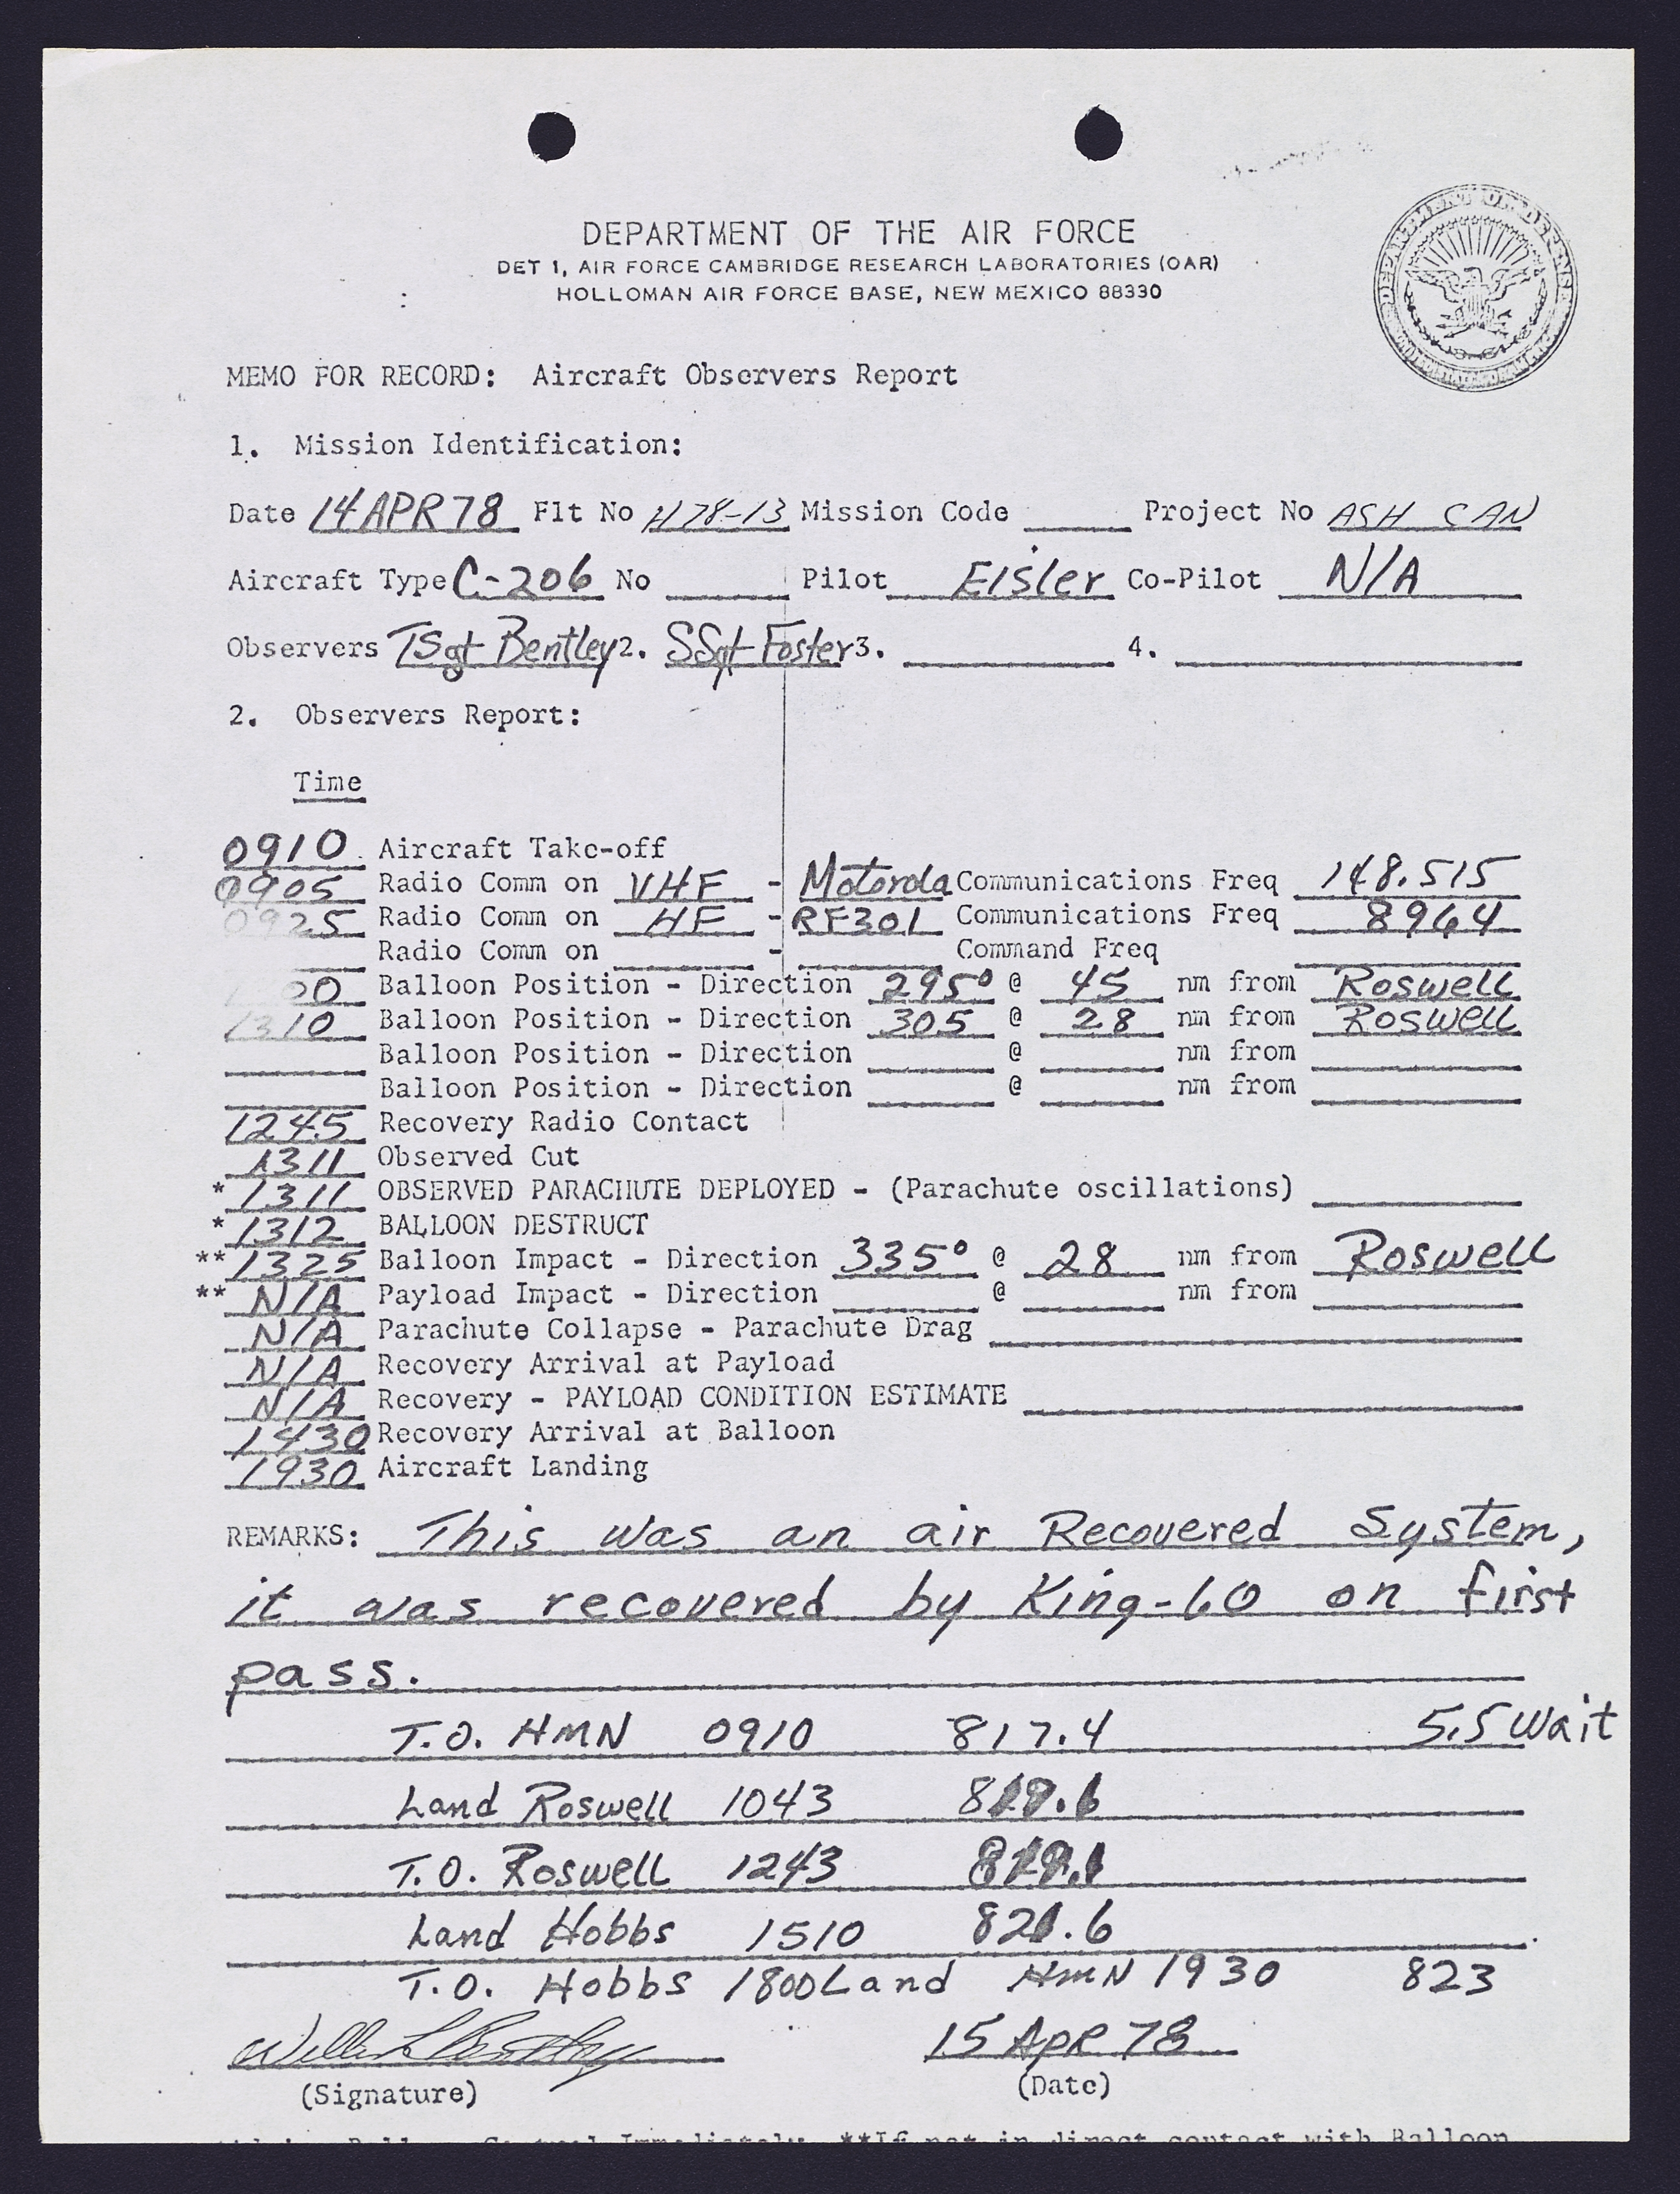 DEPARTMENT OF THE AIR FORCE
DET 1, AIR FORCE CAMBRIDGE RESEARCH LABORATORIES (OAR)
HOLLOMAN AIR FORCE BASE, NEW MEXICO 88330
MEMO FOR RECORD: Aircraft Observers Report
1. Mission Identification:
Date 14 APR 78 Flt No H78-13 Mission Code Project No ASH CAN
Aircraft Type C-206 No Pilot Eisler Co-Pilot N/A
Observers TSgt Bentley 2. SSgt Foster 3. 4.
2. Observers Report:
Time
0910 Aircraft Take-off
0905 Radio Comm on VHF - Motorola Communications Freq 148.515
0925 Radio Comm on HF - RF301 Communications Freq 8964
Radio Comm on - Command Freq
00 Balloon Position - Direction 295° @ 45 nm from Roswell
1310 Balloon Position - Direction 305 @ 28 nm from Roswell
Balloon Position - Direction @ nm from
Balloon Position - Direction @ nm from
1245 Recovery Radio Contact
1311 Observed Cut
* 1311 OBSERVED PARACHUTE DEPLOYED - (Parachute oscillations)
* 1312 BALLOON DESTRUCT
** 1325 Balloon Impact - Direction 335° @ 28 nm from Roswell
** N/A Payload Impact - Direction @ nm from
N/A Parachute Collapse - Parachute Drag
N/A Recovery Arrival at Payload
N/A Recovery - PAYLOAD CONDITION ESTIMATE
1430 Recovery Arrival at Balloon
1930 Aircraft Landing
REMARKS: This was an air Recovered System,
it was recovered by King-60 on first
pass.
T.O. HMN 0910 817.4 5.5 wait
Land Roswell 1043
T.O. Roswell 1243
Land Hobbs 1510
T.O. Hobbs 1800 Land HMN 1930 823
15 Apr 78
(Signature) (Date)
Immediately. **If not in direct contact with Balloon